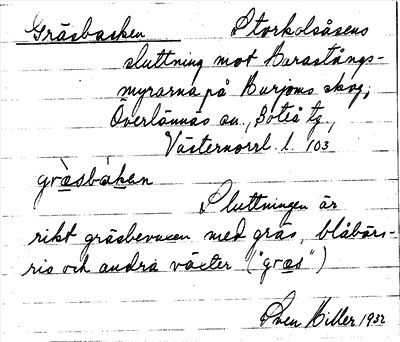 Gräsbacken Storkolsåsens
sluttning mot Barastångs-
myrarna på Burjons skog,
Överlännäs sn., Boteå tg.,
Västernorrl. l. 103
græ̀sbákan
Sluttningen är
rikt gräsbevuxen med gräs, blåbärs-
ris och andra växter ("græs")
Sven Hiller 1932